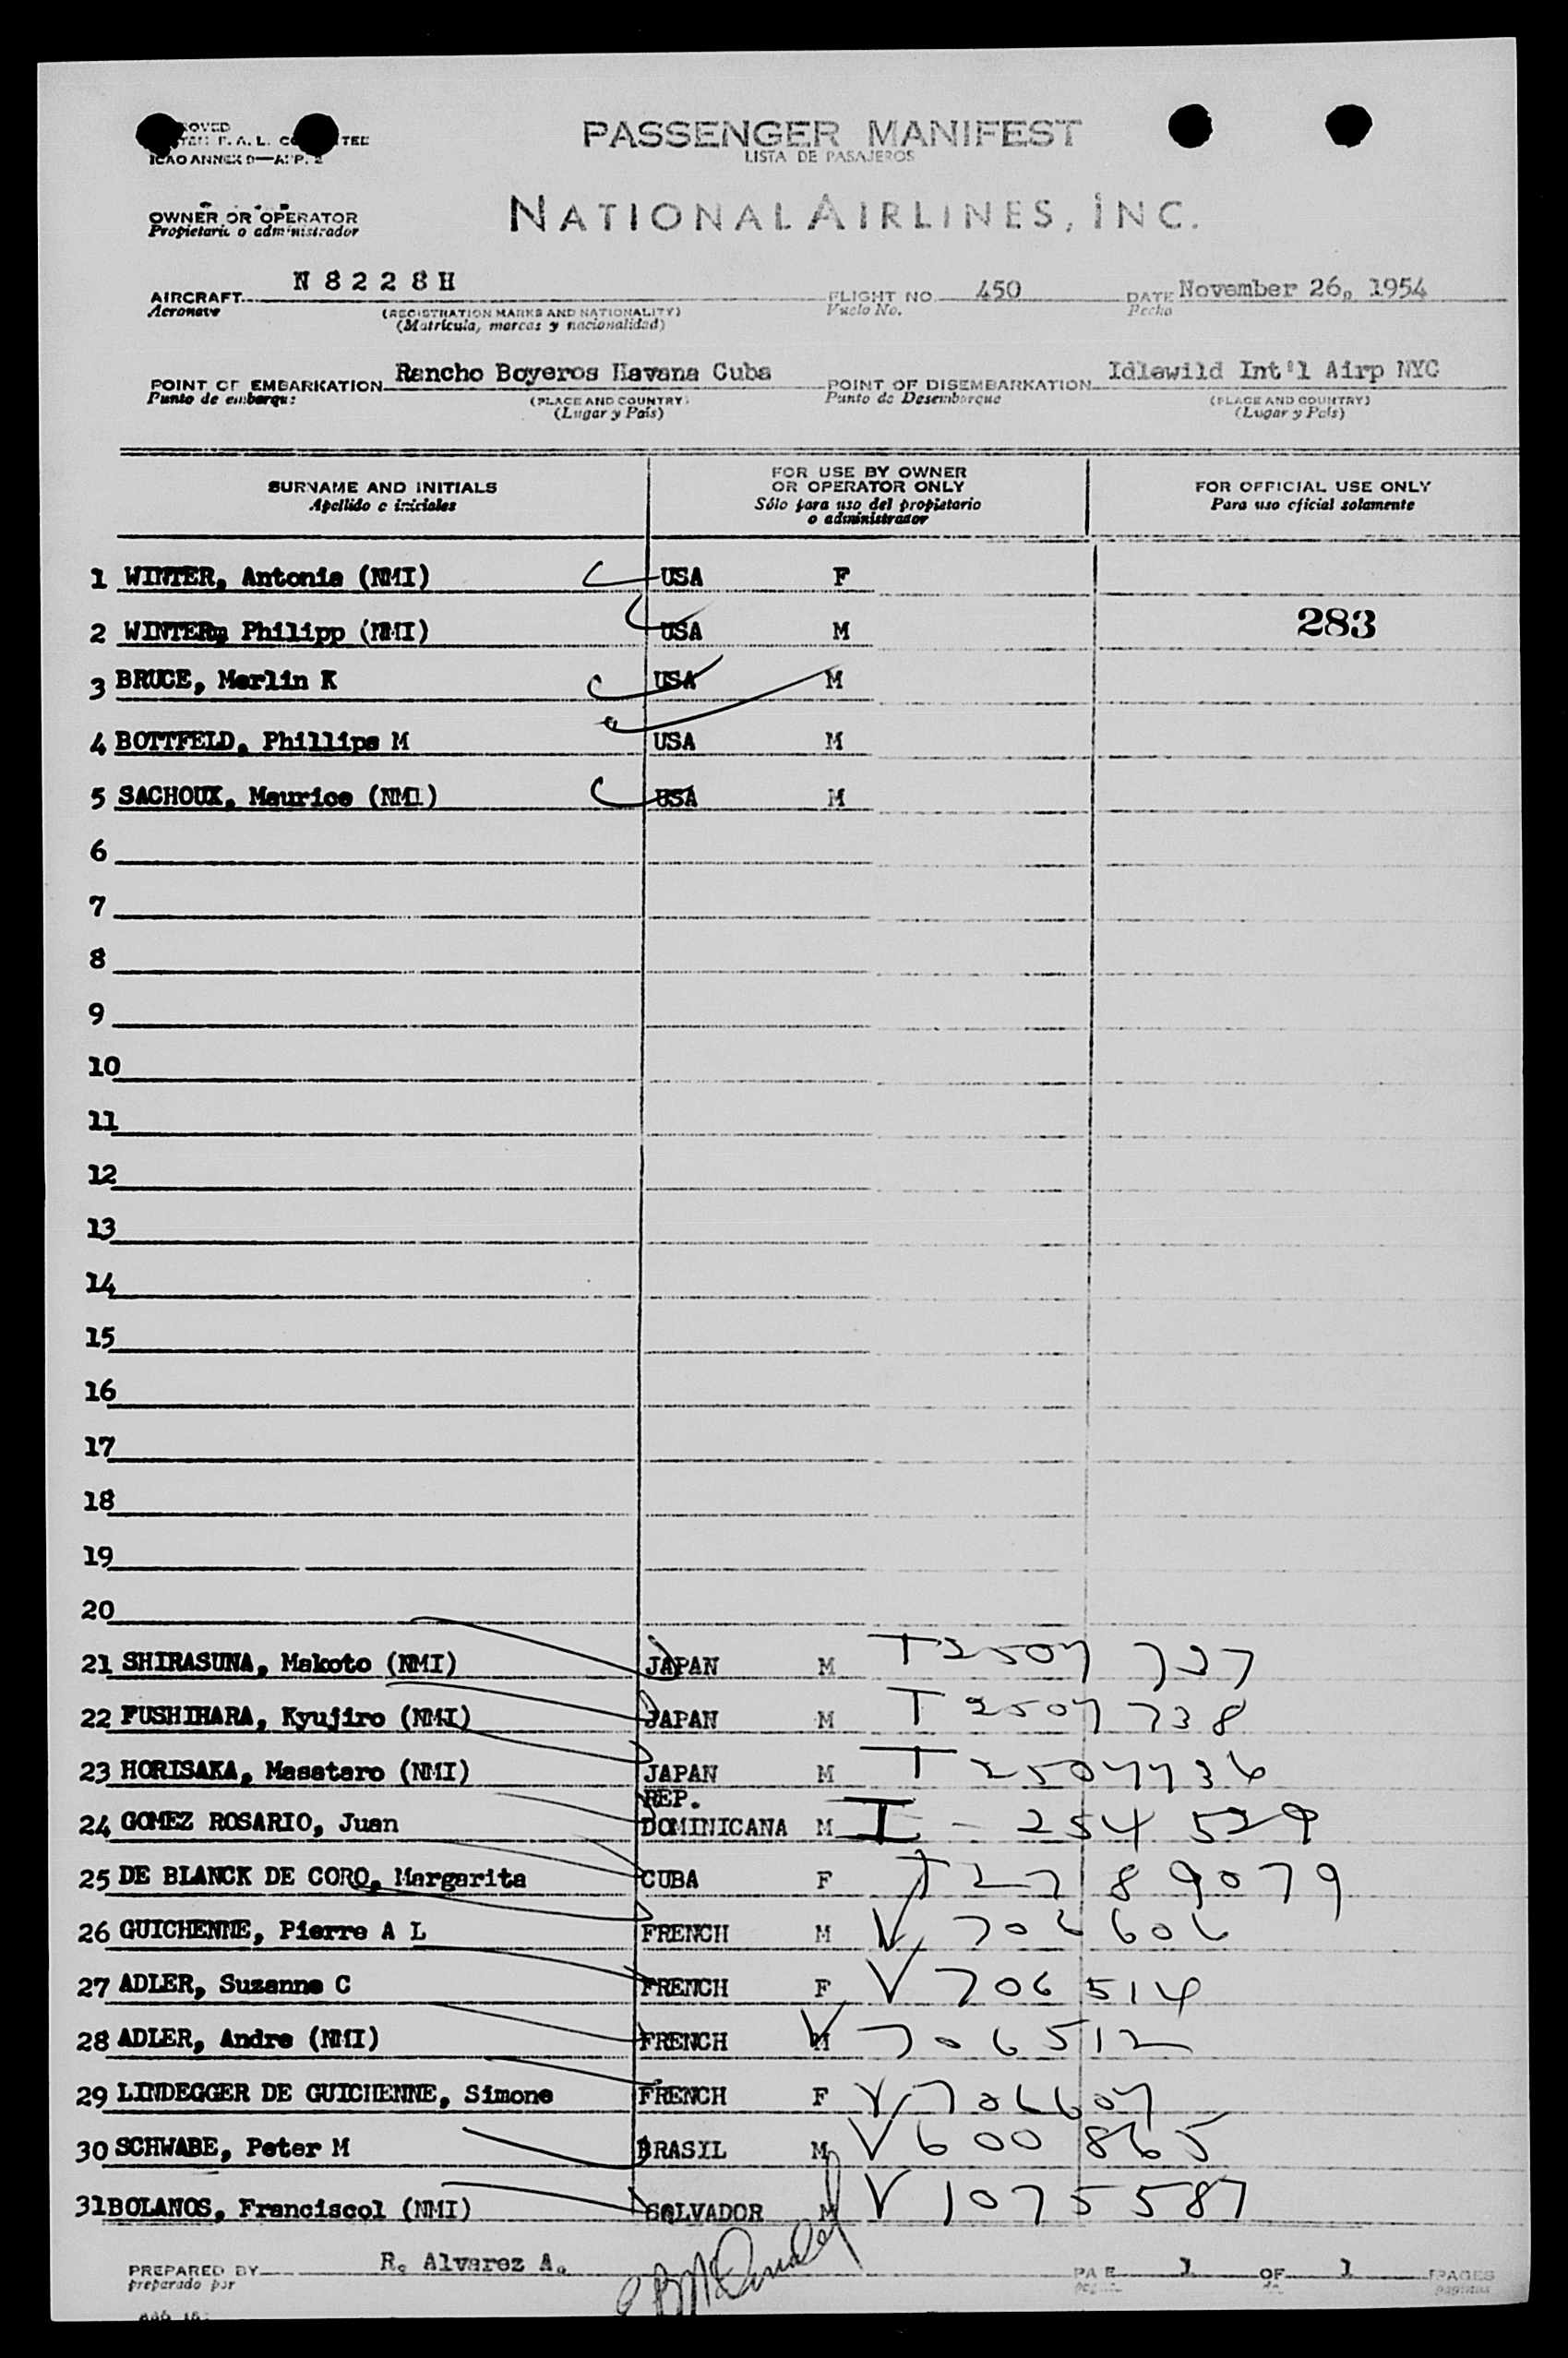 PASSENGER MANIFEST
LISTA DE PASAJEROS
F. A. L.
ICAO ANNEX 9—APP. 2
NATIONAL AIRLINES, INC.
OWNER OR OPERATOR
Propietario o administrador
AIRCRAFT N 8 2 2 8 H FLIGHT NO. 450 DATE November 26, 1954
Aeronave (REGISTRATION MARKS AND NATIONALITY) Vuelo No. Fecha
(Matrícula, marcas y nacionalidad)
POINT OF EMBARKATION Rancho Boyeros Havana Cuba POINT OF DISEMBARKATION Idlewild Int'l Airp NYC
Punto de embarque (PLACE AND COUNTRY) Punto de Desembarque (PLACE AND COUNTRY)
(Lugar y País) (Lugar y País)
SURNAME AND INITIALS FOR USE BY OWNER OR OPERATOR ONLY FOR OFFICIAL USE ONLY
Apellido e iniciales Sólo para uso del propietario o administrador Para uso oficial solamente
1 WINTER, Antonia (NMI) USA F
2 WINTER, Philipp (NMI) USA M 283
3 BRUCE, Merlin K USA M
4 BOTTFELD, Phillips M USA M
5 SACHOUX, Maurice (NMI) USA M
6
7
8
9
10
11
12
13
14
15
16
17
18
19
20
21 SHIRASUNA, Makoto (NMI) JAPAN M T2507 737
22 FUSHIHARA, Kyujiro (NMI) JAPAN M T 2507 738
23 HORISAKA, Masataro (NMI) JAPAN M T 2507736
REP.
24 GOMEZ ROSARIO, Juan DOMINICANA M I - 254 529
25 DE BLANCK DE CORO, Margarita CUBA F T 27 89079
26 GUICHENNE, Pierre A L FRENCH M V 706 606
27 ADLER, Suzanne C FRENCH F V 706 514
28 ADLER, Andre (NMI) FRENCH M V 706512
29 LINDEGGER DE GUICHENNE, Simone FRENCH F V 706607
30 SCHWABE, Peter M BRASIL M V 600 865
31 BOLANOS, Franciscol (NMI) SALVADOR M V 1075587
PREPARED BY R. Alvarez A. PAGE 1 OF 1 PAGES
preparado por de páginas